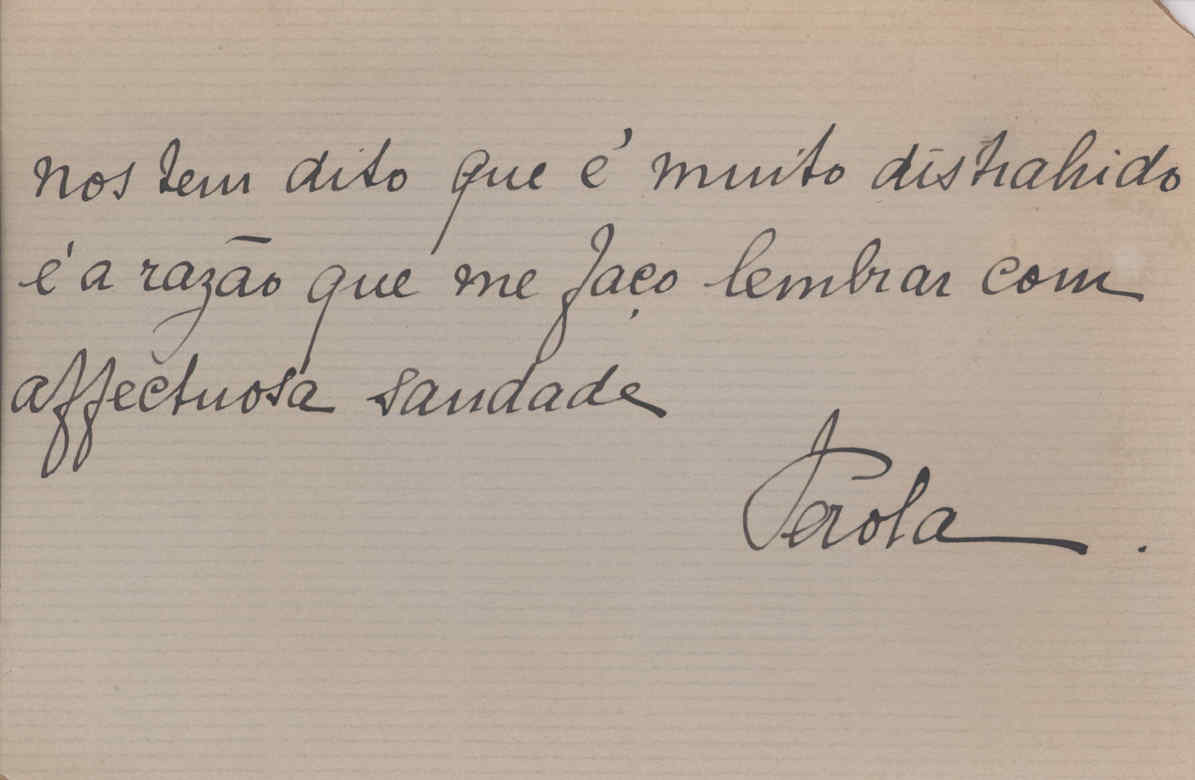 nos tem dito que é muito distrahido
é a razão que me faço lembrar com
affectuosa saudade
Perola.